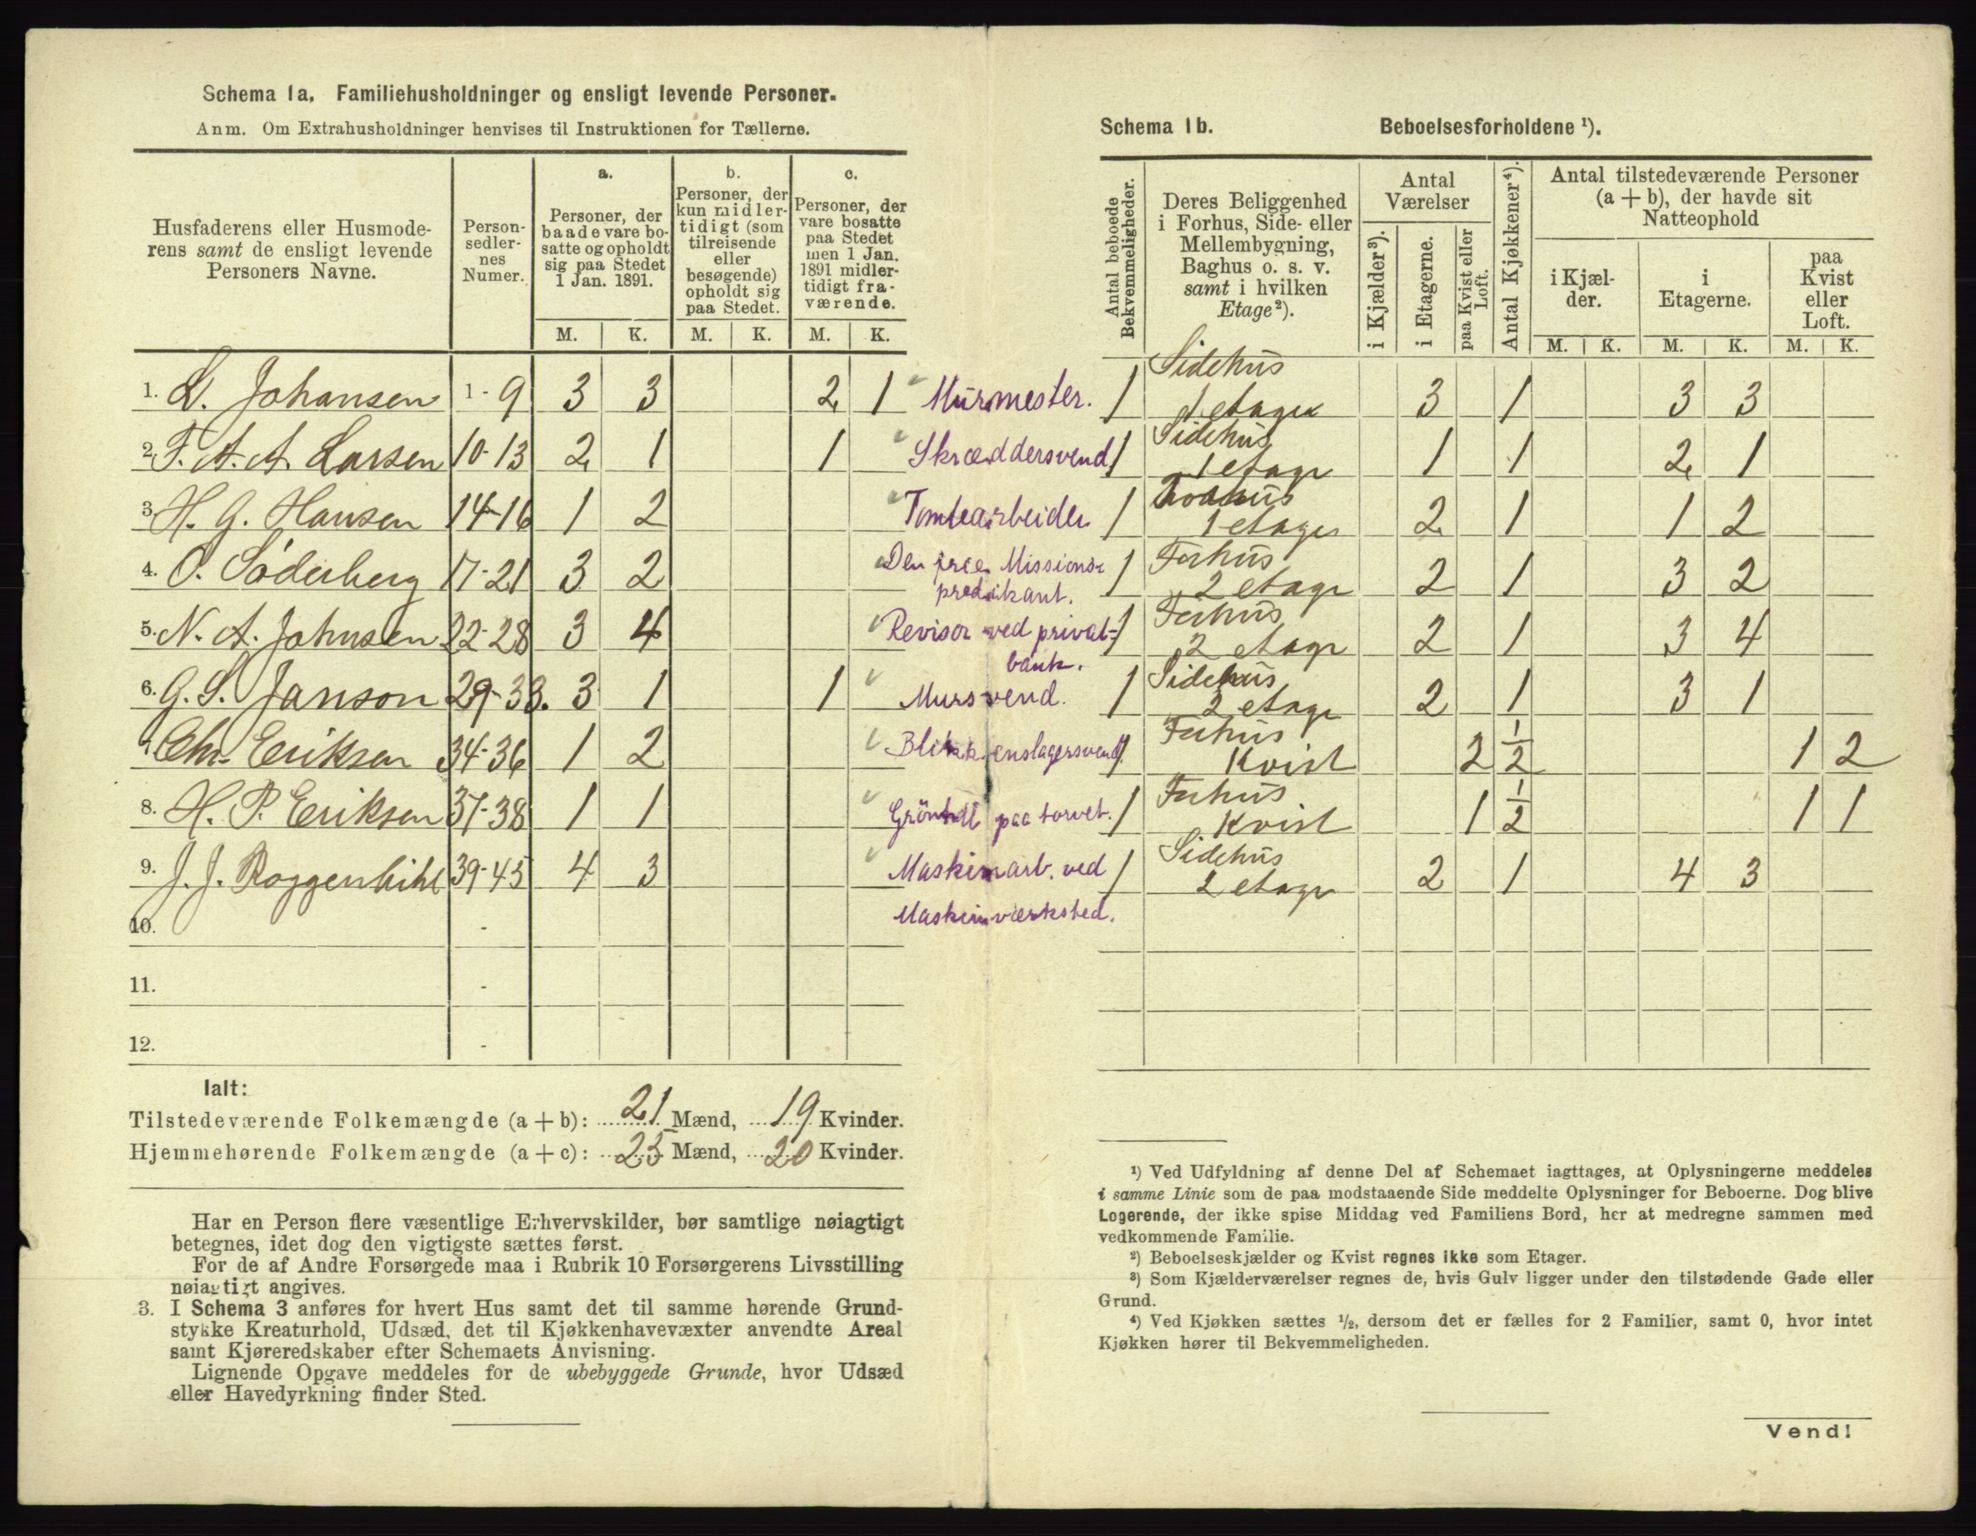 Schema 1a. Familiehusholdninger og ensligt levende Personer.
Anm. Om Extrahusholdninger henvises til Instruktionen for Tællerne.
Husfaderens eller Husmode-
rens samt de ensligt levende
Personers Navne.
Person-
sedler-
nes
Numer.
a.
Personer, der
baade vare bo-
satte og opholdt
sig paa Stedet
1 Jan. 1891.
b.
Personer, der
kun midler-
tidigt (som
tilreisende
eller
besøgende)
opholdt sig
paa Stedet.
c.
Personer, der
vare bosatte
paa Stedet
men 1 Jan.
1891 midler-
tidigt fra-
værende.
M. K. M. K. M. K.
1. L. Johansen 1-9 3 3 2 1 Murmester.
2. F. A. A. Larsen 10-13 2 1 1 Skræddersvend
3. H. G. Hansen 14-16 1 2 Tomtearbeider
4. O. Söderberg 17-21 3 2 Den frie Missions-
predikant.
5. N. A. Johnsen 22-28 3 4 Revisor ved privat-
bank.
6. G. S. Janson 29-33. 3 1 1 Mursvend.
Chr. Eriksen 34-36 1 2 Blikkenslagersvend.
8. H. P. Eriksen 37-38 1 1 Grönth paa torvet.
9. J. J. Roggenbihl 39-45 4 3 Maskinarb. ved
Maskinværksted.
10. -
11. -
12. -
Ialt:
Tilstedeværende Folkemængde (a + b): 21 Mænd, 19 Kvinder.
Hjemmehørende Folkemængde (a + c): 25 Mænd, 20 Kvinder.
Har en Person flere væsentlige Erhvervskilder, bør samtlige nøiagtigt
betegnes, idet dog den vigtigste sættes først.
For de af Andre Forsørgede maa i Rubrik 10 Forsørgerens Livsstilling
nøiagtigt angives.
3. I Schema 3 anføres for hvert Hus samt det til samme hørende Grund-
stykke Kreaturhold, Udsæd, det til Kjøkkenhavevæxter anvendte Areal
samt Kjøreredskaber efter Schemaets Anvisning.
Lignende Opgave meddeles for de ubebyggede Grunde, hvor Udsæd
eller Havedyrkning finder Sted.
Schema 1b. Beboelsesforholdene ¹).
Antal beboede
Bekvemmeligheder.
Deres Beliggenhed
i Forhus, Side- eller
Mellembygning,
Baghus o. s. v.
samt i hvilken
Etage²).
Antal
Værelser
i Kjælder³).
i Etagerne.
paa Kvist eller
Loft.
Antal Kjøkkener⁴).
Antal tilstedeværende Personer
(a + b), der havde sit
Natteophold
i Kjæl-
der.
i
Etagerne.
paa
Kvist
eller
Loft.
M. K. M. K. M. K.
1 Sidehus
1 etage 3 1 3 3
1 Sidehus
1 etage 1 1 2 1
1
1 etage 2 1 1 2
1 Forhus
2 etage 2 1 3 2
1 Forhus
2 etage 2 1 3 4
1 Sidehus
2 etage 2 1 3 1
1 Forhus
Kvist 2 1/2 1 2
1 Forhus
Kvist 1 1/2 1 1
1 Sidehus
2 etage 2 1 4 3
¹) Ved Udfyldning af denne Del af Schemaet iagttages, at Oplysningerne meddeles
i samme Linie som de paa modstaaende Side meddelte Oplysninger for Beboerne. Dog blive
Logerende, der ikke spise Middag ved Familiens Bord, her at medregne sammen med
vedkommende Familie.
²) Beboelseskjælder og Kvist regnes ikke som Etager.
³) Som Kjælderværelser regnes de, hvis Gulv ligger under den tilstødende Gade eller
Grund.
⁴) Ved Kjøkken sættes ½, dersom det er fælles for 2 Familier, samt 0, hvor intet
Kjøkken hører til Bekvemmeligheden.
Vend!